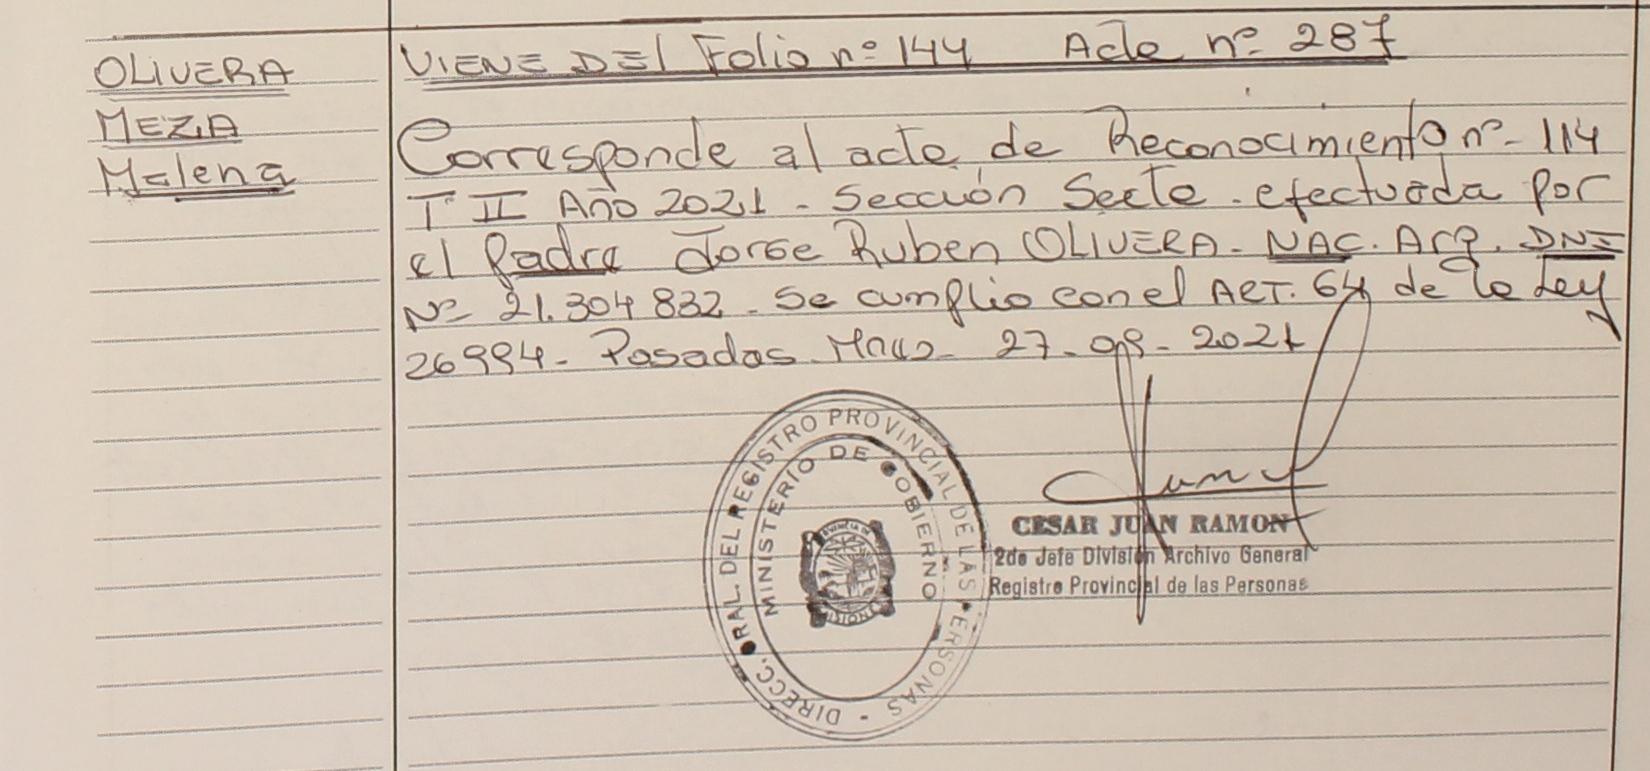 OLIVERA
MEZA
Malena
VIENE DEL Folio nº 144 Acta nº 287
Corresponde al acta de Reconocimiento nº 114
Tº II Año 2021 - Sección Sexta - efectuada por
el padre Jorge Ruben OLIVERA - NAC. Arg. DNI
Nº 21.304 832 - Se cumplio con el ART. 64 de la Ley
26994 - Posadas Mnes 27-09-2021
DIRECC. GRAL. DEL REGISTRO PROVINCIAL DE LAS PERSONAS -
MINISTERIO DE GOBIERNO
PROVINCIA DE
MISIONES
CESAR JUAN RAMON
2do Jefe División Archivo General
Registro Provincial de las Personas